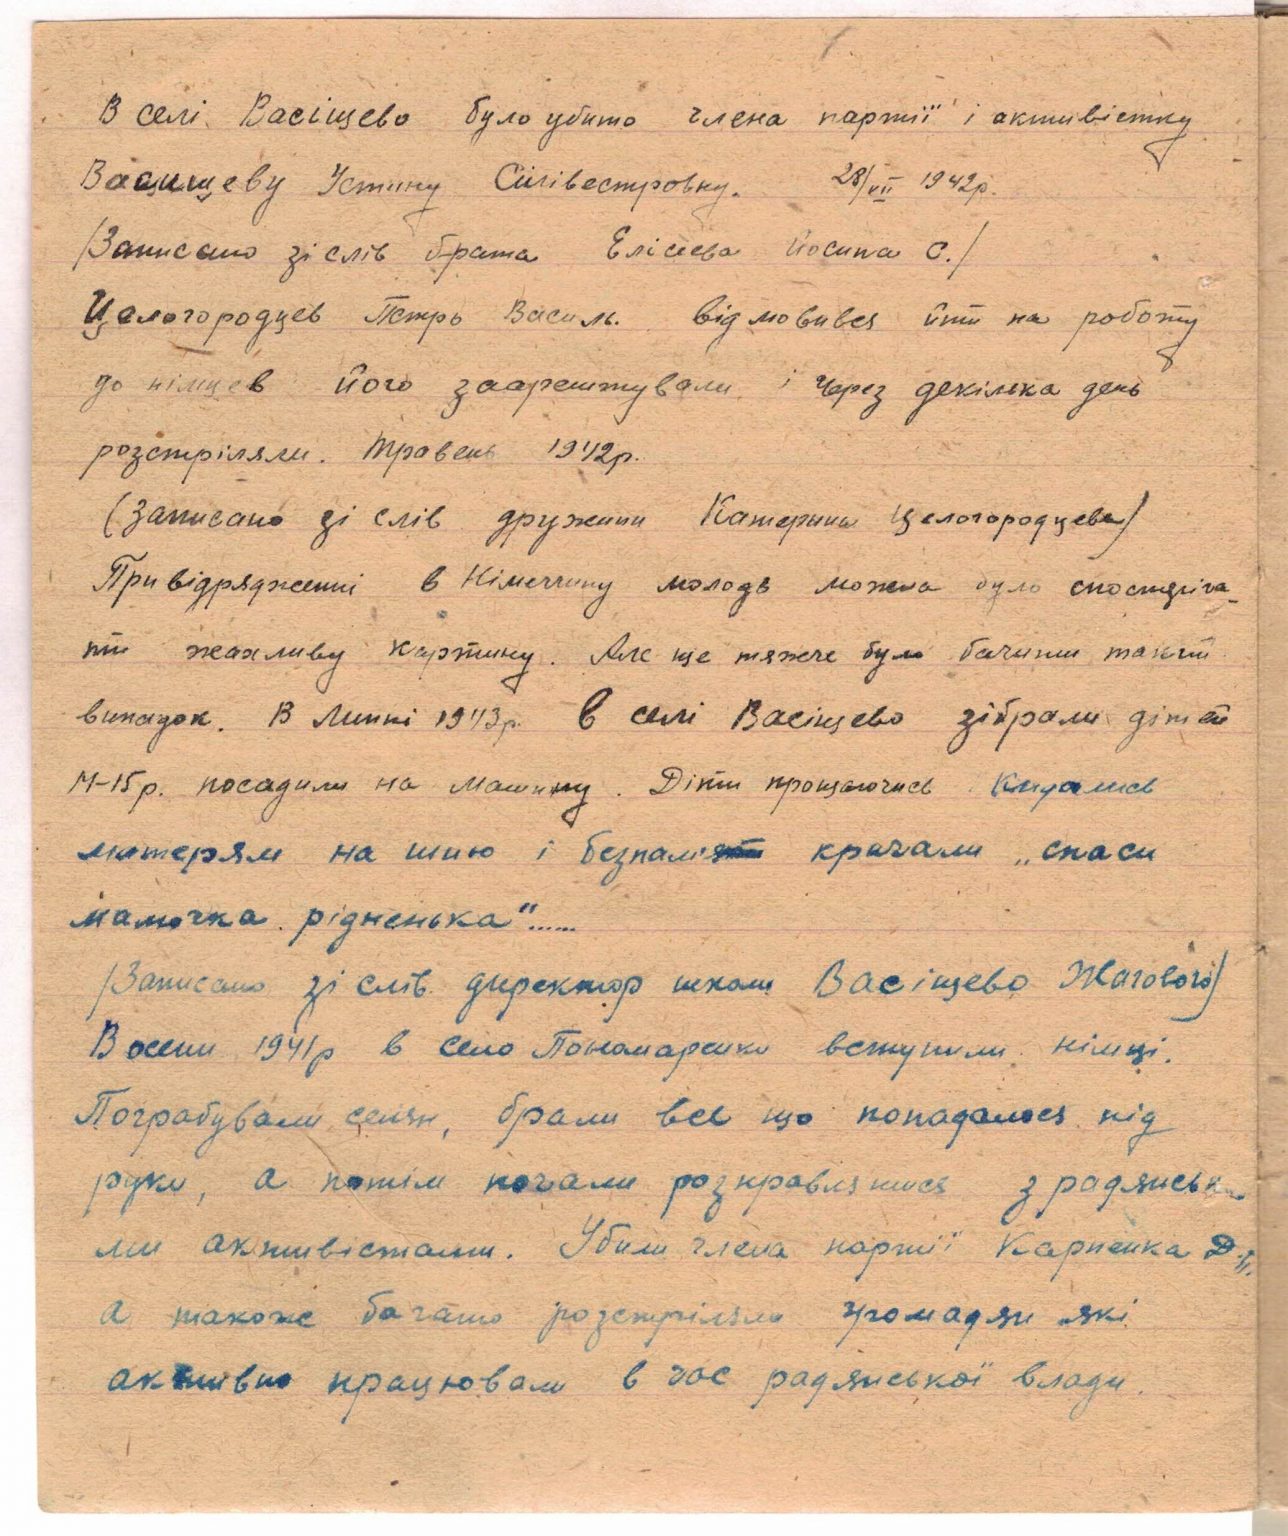 В селі Васіщево було убито члена партії і активістку
Васищеву Устину Сілівестровну. 28/VII 1942р.
/Записано зі слів брата Елісеева Йосипа С./
Целогородцев Петро Василь. відмовився йти на роботу
до німцев його заарештували і через декілька день
розстріляли. Травень 1942р.
(Записано зі слів дружини Катерини Целогородцева)
При відрядженні в Німеччину молодь можна було спостеріга-
ти жахливу картину. Але ще тяжче було бачити такий
випадок. В Липні 1943р. в селі Васіщево зібрали дітей
14-15р. посадили на машину. Діти прощаючись кидались
матерям на шию і безпам'я кричали „спаси
мамочка рідненька"......
/Записано зі слів директор школи Васіщево Жагового/
Восени 1941р в село Пономаренки вступили німці.
Пограбували селян, брали все що попадалося під
руки, а потім почали розправлятися з радянськи
ми активістами. Убили члена партії Карпенка Д.
а також багато розстріляли громадян які
активно працювали в час радянської влади.